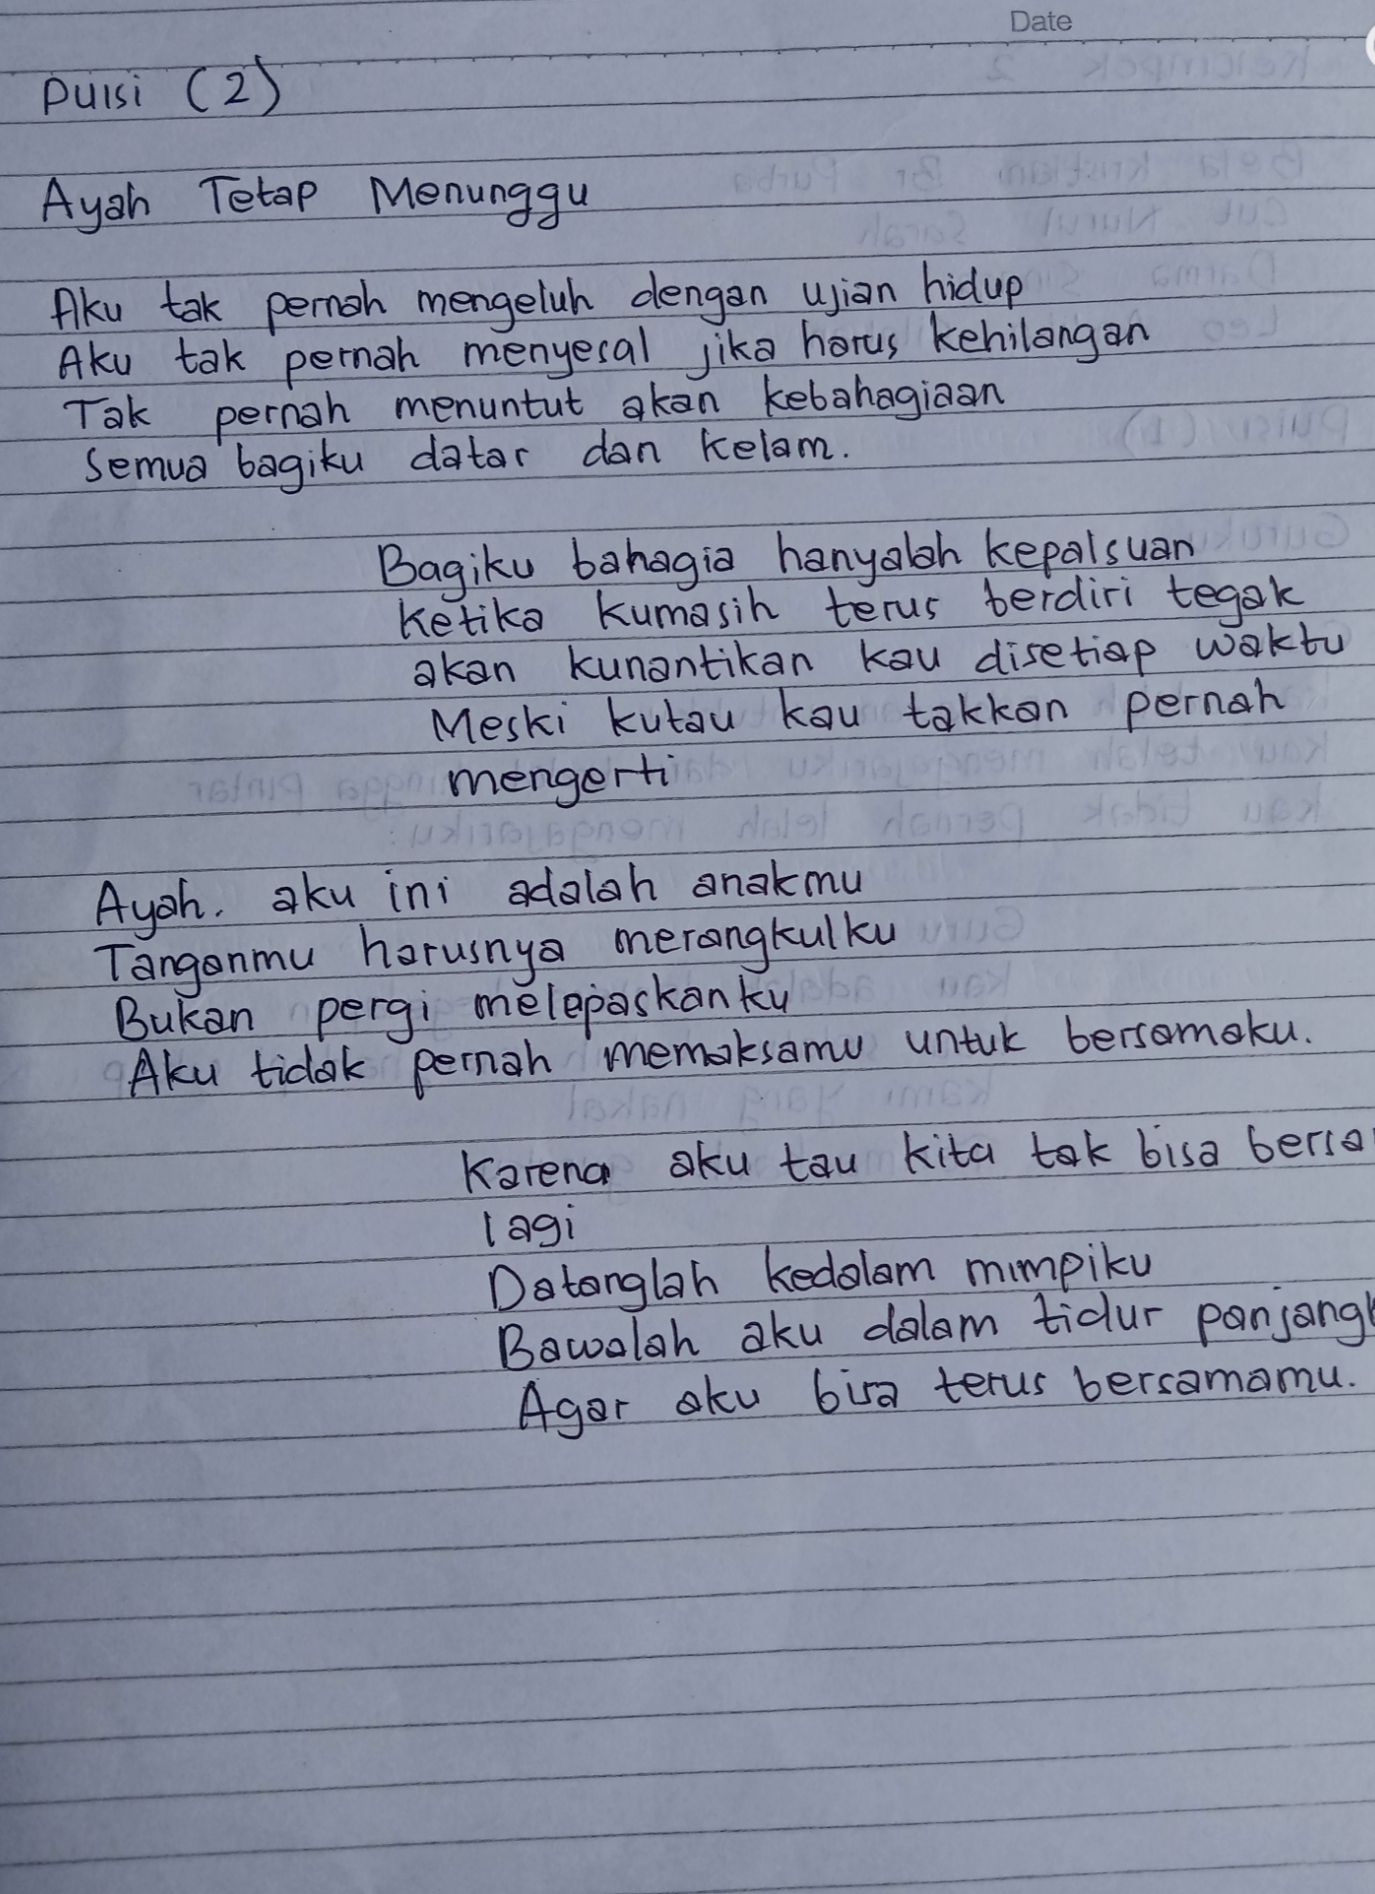 Date
Puisi (2)
Ayah Tetap Menunggu
Aku tak pernah mengeluh dengan ujian hidup
Aku tak pernah menyesal jika harus kehilangan
Tak pernah menuntut akan kebahagiaan
Semua bagiku datar dan kelam.
Bagiku bahagia hanyalah kepalsuan
Ketika kumasih terus berdiri tegak
akan kunantikan kau disetiap waktu
Meski kutau kau takkan pernah
mengerti
Ayah. aku ini adalah anakmu
Tanganmu harusnya merangkulku
Bukan pergi melepaskanku
Aku tidak pernah memaksamu untuk bersamaku.
Karena aku tau kita tak bisa bersa
lagi
Datanglah kedalam mimpiku
Bawalah aku dalam tidur panjang
Agar aku bisa terus bersamamu.